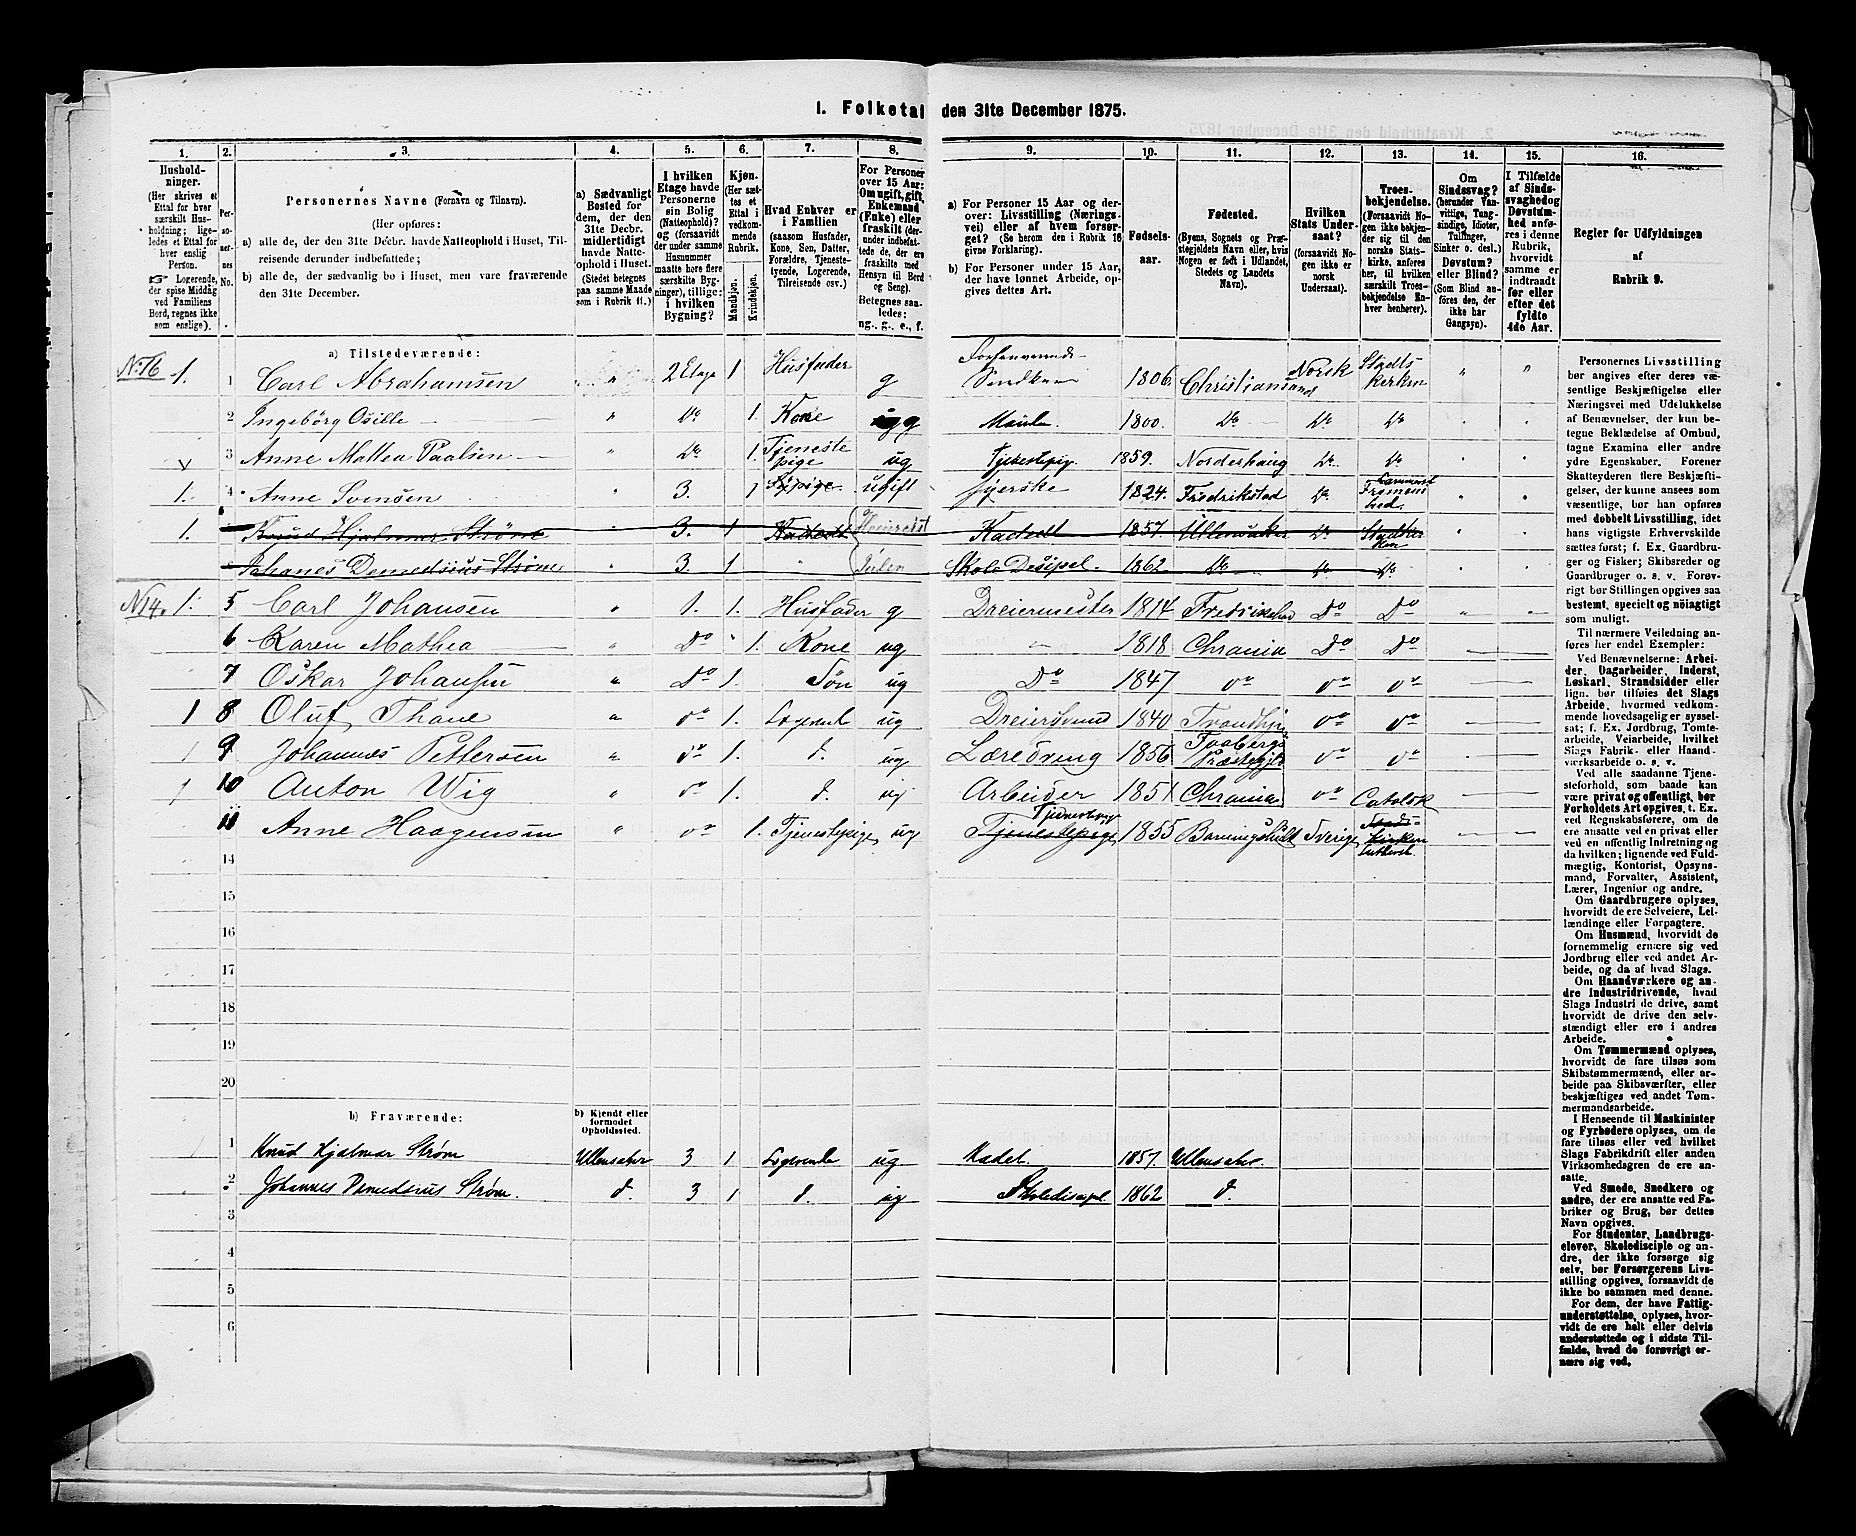 1. Folketal den 31te December 1875.
1. 2. 3. 4. 5. 6. 7. 8. 9. 10. 11. 12. 13. 14. 15. 16.
Husholdninger.
(Her skrives et
Ettal for hver
særskilt Husholdning;
ligeledes
et Ettal for hver
enslig
Person.
☞ Logerende,
der spise Middag
ved Familiens
Bord, regnes ikke
som enslige).
Personernes
No.
Personernes Navne (Fornavn og Tilnavn).
(Her opføres:
a) alle de, der den 31te Decbr. havde Natteophold i Huset, Tilreisende
derunder indbefattede;
b) alle de, der sædvanlig bo i Huset, men vare fraværende
den 31te December.
a) Sædvanligt
Bosted for
dem, der den
31te Decbr.
midlertidigt
havde Natteophold
i Huset.
(Stedet betegnes
paa samme Maade
som i Rubrik 11.)
I hvilken
Etage havde
Personerne
sin Bolig
(Natteophold)?
og (forsaavidt
der under samme
Husnummer
maatte høre flere
særskilte Bygninger),
tillige:
i hvilken
Bygning?
Kjøn.
(Her sættes
et
Ettal i
vedkommende
Rubrik.
Mandkjøn.
Kvindekjøn.
Hvad Enhver er
i Familien
(saasom Husfader,
Kone, Søn, Datter,
Forældre, Tjenestetyende,
Logerende,
Tilreisende osv.)
For Personer
over 15 Aar:
Om ugift, gift,
Enkemand
(Enke) eller
fraskilt (derunder
indbefattede
de, der ere
fraskilte med
Hensyn til Bord
og Seng).
Betegnes saaledes:
ug., g., e., f.
a) For Personer 15 Aar og derover:
Livsstilling (Næringsvei)
eller af hvem forsørget?
(Se herom den i Rubrik 16
givne Forklaring).
b) For Personer under 15 Aar,
der have lønnet Arbeide, opgives
dettes Art.
Fødselsaar.
Fødested.
(Byens, Sognets og Præstegjeldets
Navn eller, hvis
Nogen er født i Udlandet,
Stedets og Landets
Navn).
Hvilken
Stats Undersaat?
(forsaavidt Nogen
ikke er
norsk
Undersaat).
Troesbekjendelse.
(Forsaavidt Nogen
ikke bekjender
sig til den
norske Statskirke,
anføres
her, til hvilken
særskilt Troesbekjendelse
Enhver
henhører).
Om
Sindssvag?
(herunder Vanvittige,
Tungsindige,
Idioter,
Tullinger,
Sinker o. desl.)
Døvstum?
eller Blind?
(Som Blind anføres
den, der
ikke har
Gangsyn).
I Tilfælde
af Sindssvaghed
og
Døvstumhed
anføres
i denne
Rubrik,
hvorvidt
samme er
indtraadt
før eller
efter det
fyldte
4de Aar.
Regler for Udfyldningen
af
Rubrik 9.
a) Tilstedeværende:
No 16 1. 1 Carl Abrahamsen " 2 Etage 1 Husfader g Forhenværende 1806. Christiansand Norsk Statskerken " "
2 Ingebörg Osille " Do 1. Kone g 1800. Do Do Do
3 Anne Mattea Paalsen " Do 1. Tjenestepige ug Tjenestepig 1859. Norderhaug Do Do
1. 4 Anne Svensen " 3. 1 ugift Syerske 1824. Fredrikstad Do
1. Knud Hjalmar Strøm " 3. 1 Kadett Kadett 1857 Ullensaker Do Statskirken
Johanes Demedsius Strøm 3. 1 " Skole Desipel. 1862 Do Do Do
No 14. 1. 5 Carl Johansen " 1. 1. Husfader g Dreiermester 1814 Fredrikshal Do Do " "
6 Karen Mathea " Do " 1. Kone ug 1818 Chrania Do Do
7 Oskar Johansen " Do 1. Søn ug Do 1847 do do do
1 8 Oluf Thane " do 1. Logerend ug Dreiersvend 1840 Trondhj do do
1 9 Johannes Pettersen " do 1. d. ug Læredreng 1856 Faabergs Præstegjld do do
1 10 Anton Wig " do 1. d. ug Arbeider 1851 Chrania do Catolsk
11 Anne Haagensen " do 1. Tjenestepige ug Tjenestepige Tjenestepige 1855 Sverige Statskirken Luthersk
14
15
16
17
18
19
20
b) Fraværende:
b) Kjendt eller
formodet
Opholdssted.
1 Knud Hjalmar Strøm Ullensaker 3 1 Logerende ug Kadet. 1857. Ullensaker.
2 Johannes Demedsius Strøm. d. 3 1 d. ug Skoledisipel. 1862 d.
3
4
5
6
Personernes Livsstilling
bør angives efter deres væsentlige
Beskjæftigelse eller
Næringsvei med Udelukkelse
af Benævnelser, der kun betegne
Beklædelse af Ombud,
tagne Examina eller andre
ydre Egenskaber. Forener
Skatteyderen flere Beskjæftigelser,
der kunne ansees som
væsentlige, bør han opføres
med dobbelt Livsstilling, idet
hans vigtigste Erhvervskilde
sættes først; f. Ex. Gaardbruger
og Fisker; Skibsreder og
Gaardbruger o. s. v. Forøvrigt
bør Stillingen opgives saa
bestemt, specielt og nøiagtigt
som muligt.
Til nærmere Veiledning anføres
her endel Exempler:
Ved Benævnelserne: Arbeider,
Dagarbeider, Inderst,
Løskarl, Strandsidder eller
lign. bør tilføies det Slags
Arbeide, hvormed vedkommende
hovedsagelig er sysselsat;
f. Ex. Jordbrug, Tomtearbeide,
Veiarbeide, hvilket
Slags Fabrik- eller Haandværksarbeide
o. s. v.
Ved alle saadanne Tjenesteforhold,
som baade kan
være privat og offentligt, bør
Forholdets Art opgives, t. Ex.
ved Regnskabsførere, om de
ere ansatte ved en privat eller
ved en offentlig Indretning og
da hvilken; lignende ved Fuldmægtig,
Kontorist, Opsynsmand,
Forvalter, Assistent,
Lærer, Ingeniør og andre.
Om Gaardbrugere oplyses,
hvorvidt de ere Selveiere, Leilændinge
eller Forpagtere.
Om Husmænd, hvorvidt de
fornemmelig ernære sig ved
Jordbrug eller ved andet Arbeide,
og da af hvad Slags.
Om Haandværkere og andre
Industridrivende, hvad
Slags Industri de drive, samt
hvorvidt de drive den selvstændigt
eller ere i andres
Arbeide.
Om Tømmermænd oplyses,
hvorvidt de fare tilsøs som
Skibstømmermænd, eller arbeide
paa Skibsværfter, eller
beskjæftiges ved andet Tømmermandsarbeide.
I Henseende til Maskinister
og Fyrbødere oplyses, om de
fare tilsøs eller ved hvilket
Slags Fabrikdrift eller anden
Virksomhedsgren de ere ansatte.
Ved Smede, Snedkere og
andre, der ere ansatte ved Fabriker
og Brug, bør dettes
Navn opgives.
For Studenter, Landbrugselever,
Skoledisciple og andre,
der ikke forsørge sig
selv, bør Forsørgerens Livsstilling
opgives, forsaavidt de
ikke bo sammen med denne.
For dem, der have Fattigunderstøttelse,
oplyses, hvorvidt
de ere helt eller delvis
understøttede og i sidste Tilfælde,
hvad de forøvrigt ernære
sig ved.